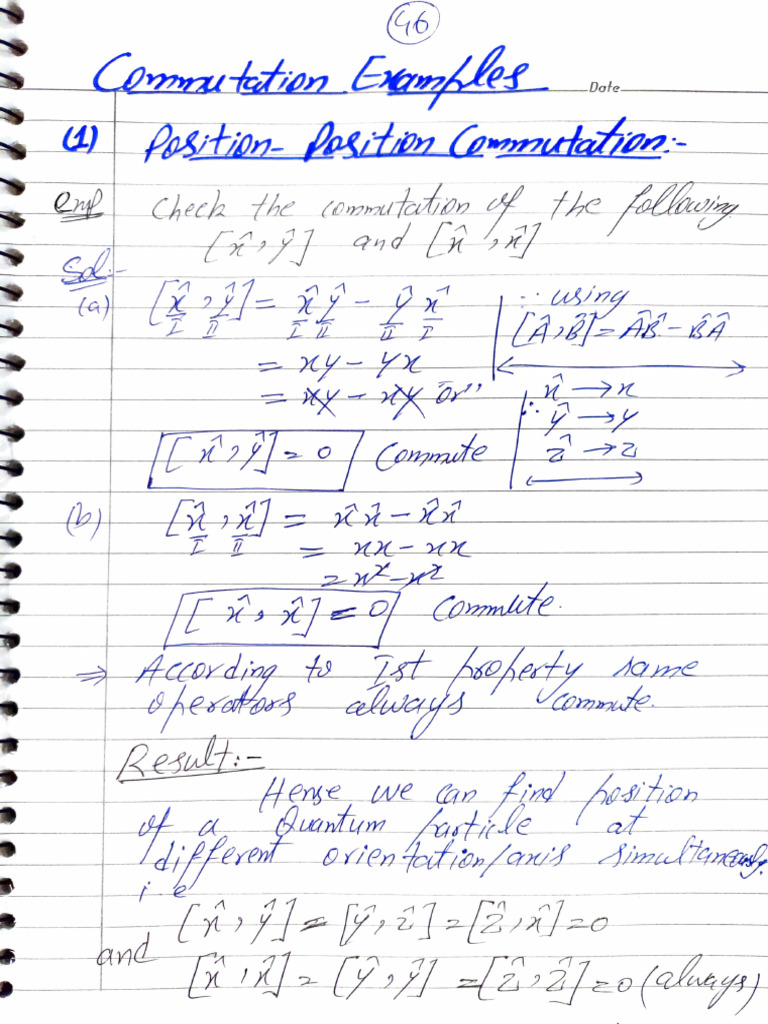 46
Commutation Examples
Date
(1) Position-Position Commutation:-
Check the commutation of the following.
[x̂, ŷ] and [x̂, x̂]
Sol:-
(a) [x̂, ŷ] = x̂ŷ - ŷx̂
I II I II II I
∵ using
[Â, B̂] = ÂB̂ - B̂Â
= xy - yx
= xy - xy
∵ x̂ → x
ŷ → y
ẑ → z
[x̂, ŷ] = 0 Commute
(b) [x̂, x̂] = x̂x̂ - x̂x̂
I II
= xx - xx
= x² - x²
[x̂, x̂] = 0 Commute.
⇒ According to Ist property same
operators always commute.
Result:-
Hense we can find position
of a Quantum particle at
different orientation/axis simultaneously.
i.e
[x̂, ŷ] = [ŷ, ẑ] = [ẑ, x̂] = 0
and
[x̂, x̂] = [ŷ, ŷ] = [ẑ, ẑ] = 0 (always)